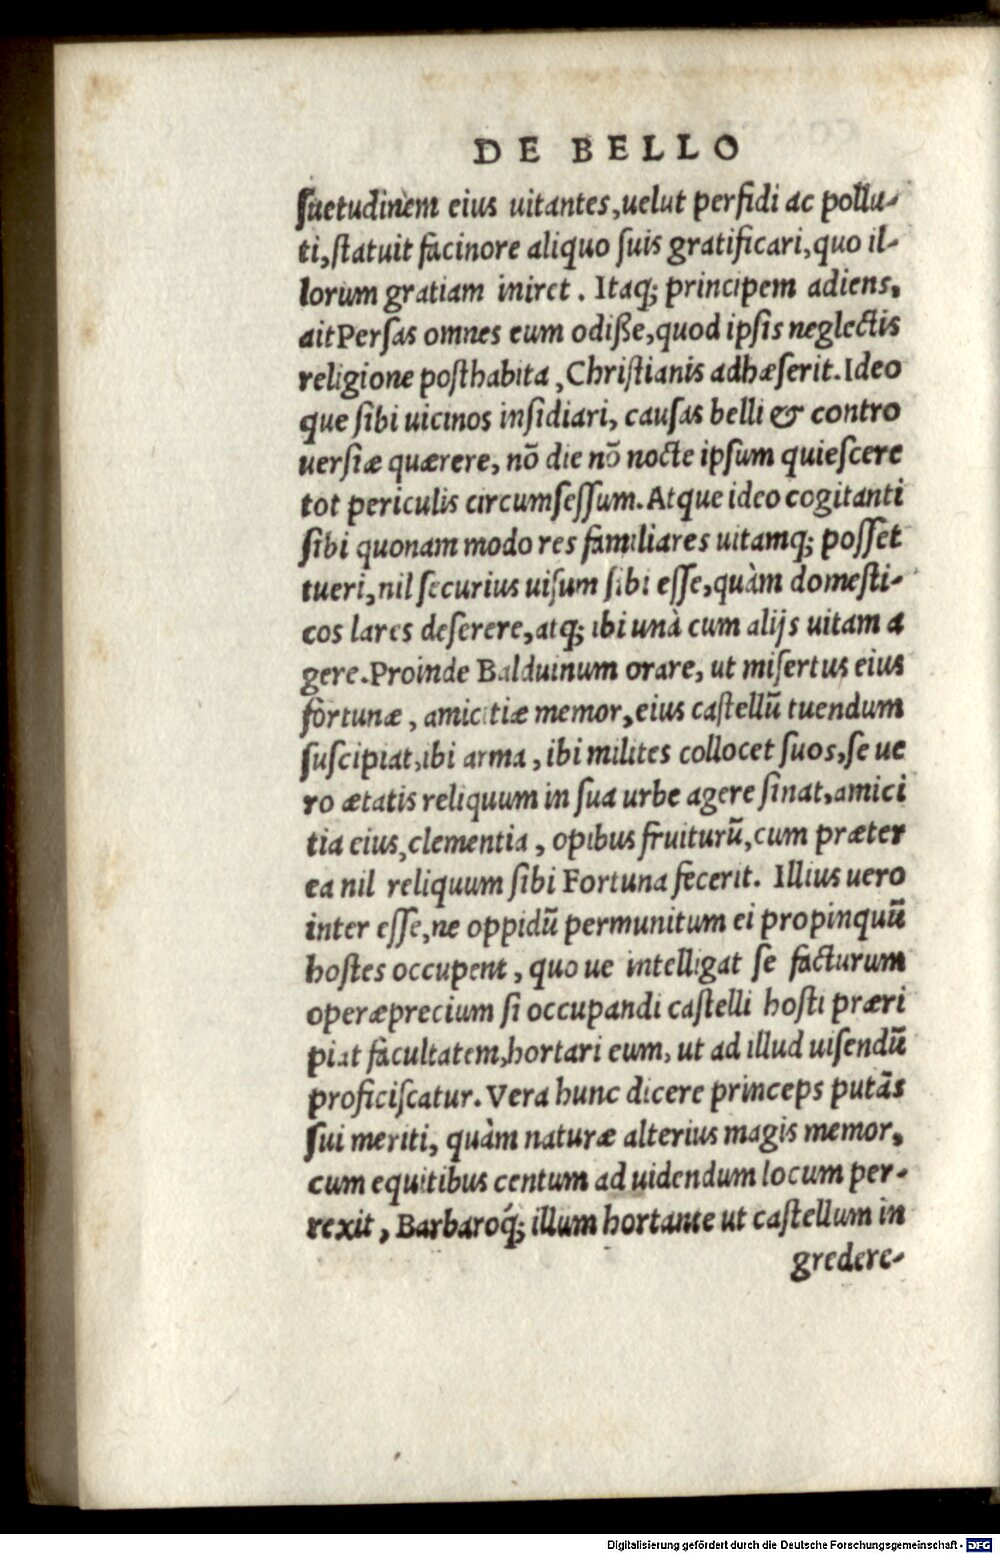 DE BELLO
suetudinem eius uitantes, uelut perfidi ac pollu-
ti, statuit facinore aliquo suis gratificari, quo il-
lorum gratiam iniret. Itaq; principem adiens,
ait Persas omnes eum odisse, quod ipsis neglectis
religione posthabita, Christianis adhæserit. Ideo
que sibi uicinos insidiari, causas belli & contro
uersiæ quærere, nō die nō nocte ipsum quiescere
tot periculis circumsessum. Atque ideo cogitanti
sibi quonam modo res familiares uitamq; posset
tueri, nil securius uisum sibi esse, quàm domesti-
cos lares deserere, atq; ibi unà cum alijs uitam a
gere. Proinde Balduinum orare, ut misertus eius
fortunæ, amicitiæ memor, eius castellū tuendum
suscipiat, ibi arma, ibi milites collocet suos, se ue
ro ætatis reliquum in sua urbe agere sinat, amici
tia eius, clementia, opibus fruiturū, cum præter
ea nil reliquum sibi Fortuna fecerit. Illius uero
inter esse, ne oppidū permunitum ei propinquū
hostes occupent, quo ue intelligat se facturum
operæprecium si occupandi castelli hosti præri
piat facultatem, hortari eum, ut ad illud uisendū
proficiscatur. Vera hunc dicere princeps putās
sui meriti, quàm naturæ alterius magis memor,
cum equitibus centum ad uidendum locum per-
rexit, Barbaroq́; illum hortante ut castellum in
gredere-
Digitalisierung gefördert durch die Deutsche Forschungsgemeinschaft - DFG